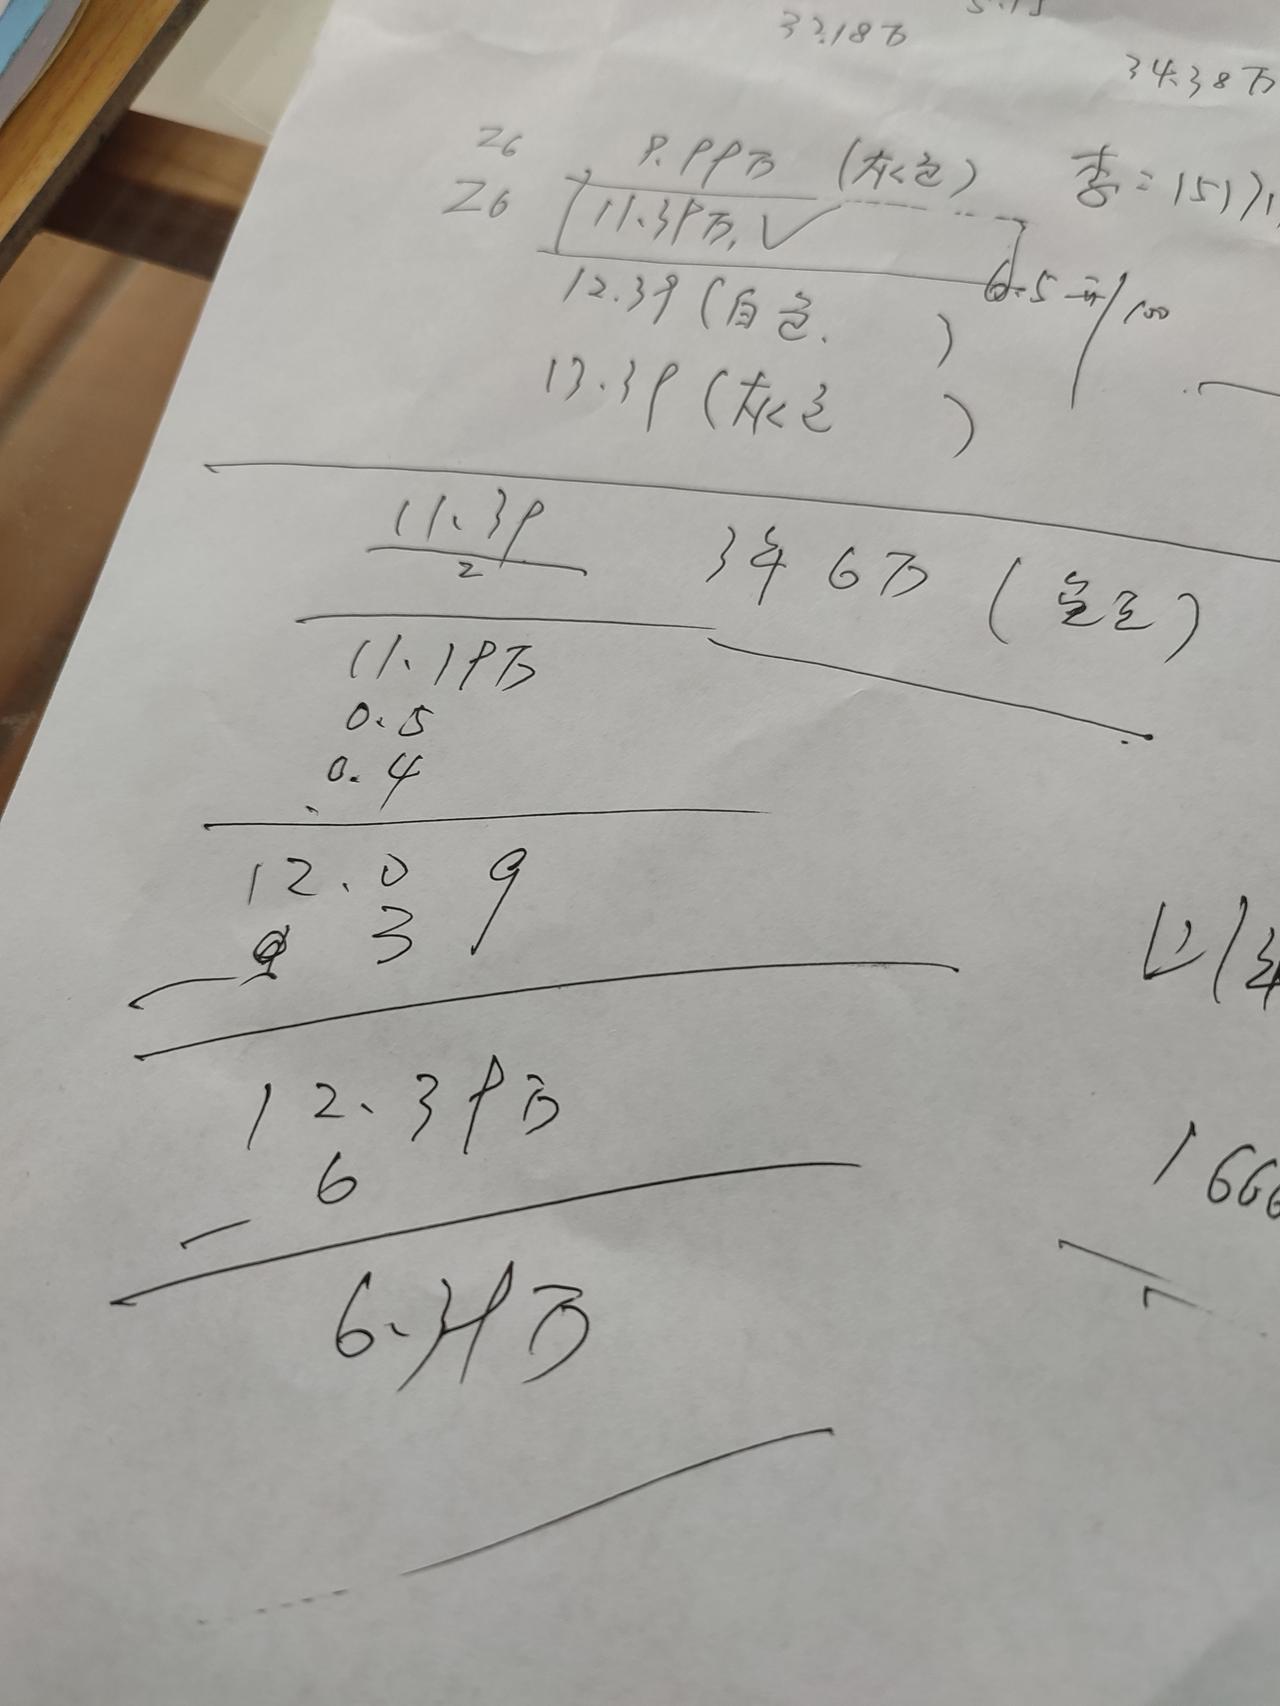 33.18万
34.38万
26 9.99万 (灰色) 李: 15171
26 11.39万. ✓
6.5元/100
12.39 (白色. )
13.39 (灰色 )
11.39
2
3年 6万
11.19万
0.5
0.4
12.09
3
12.39万
6
6.39万
1666